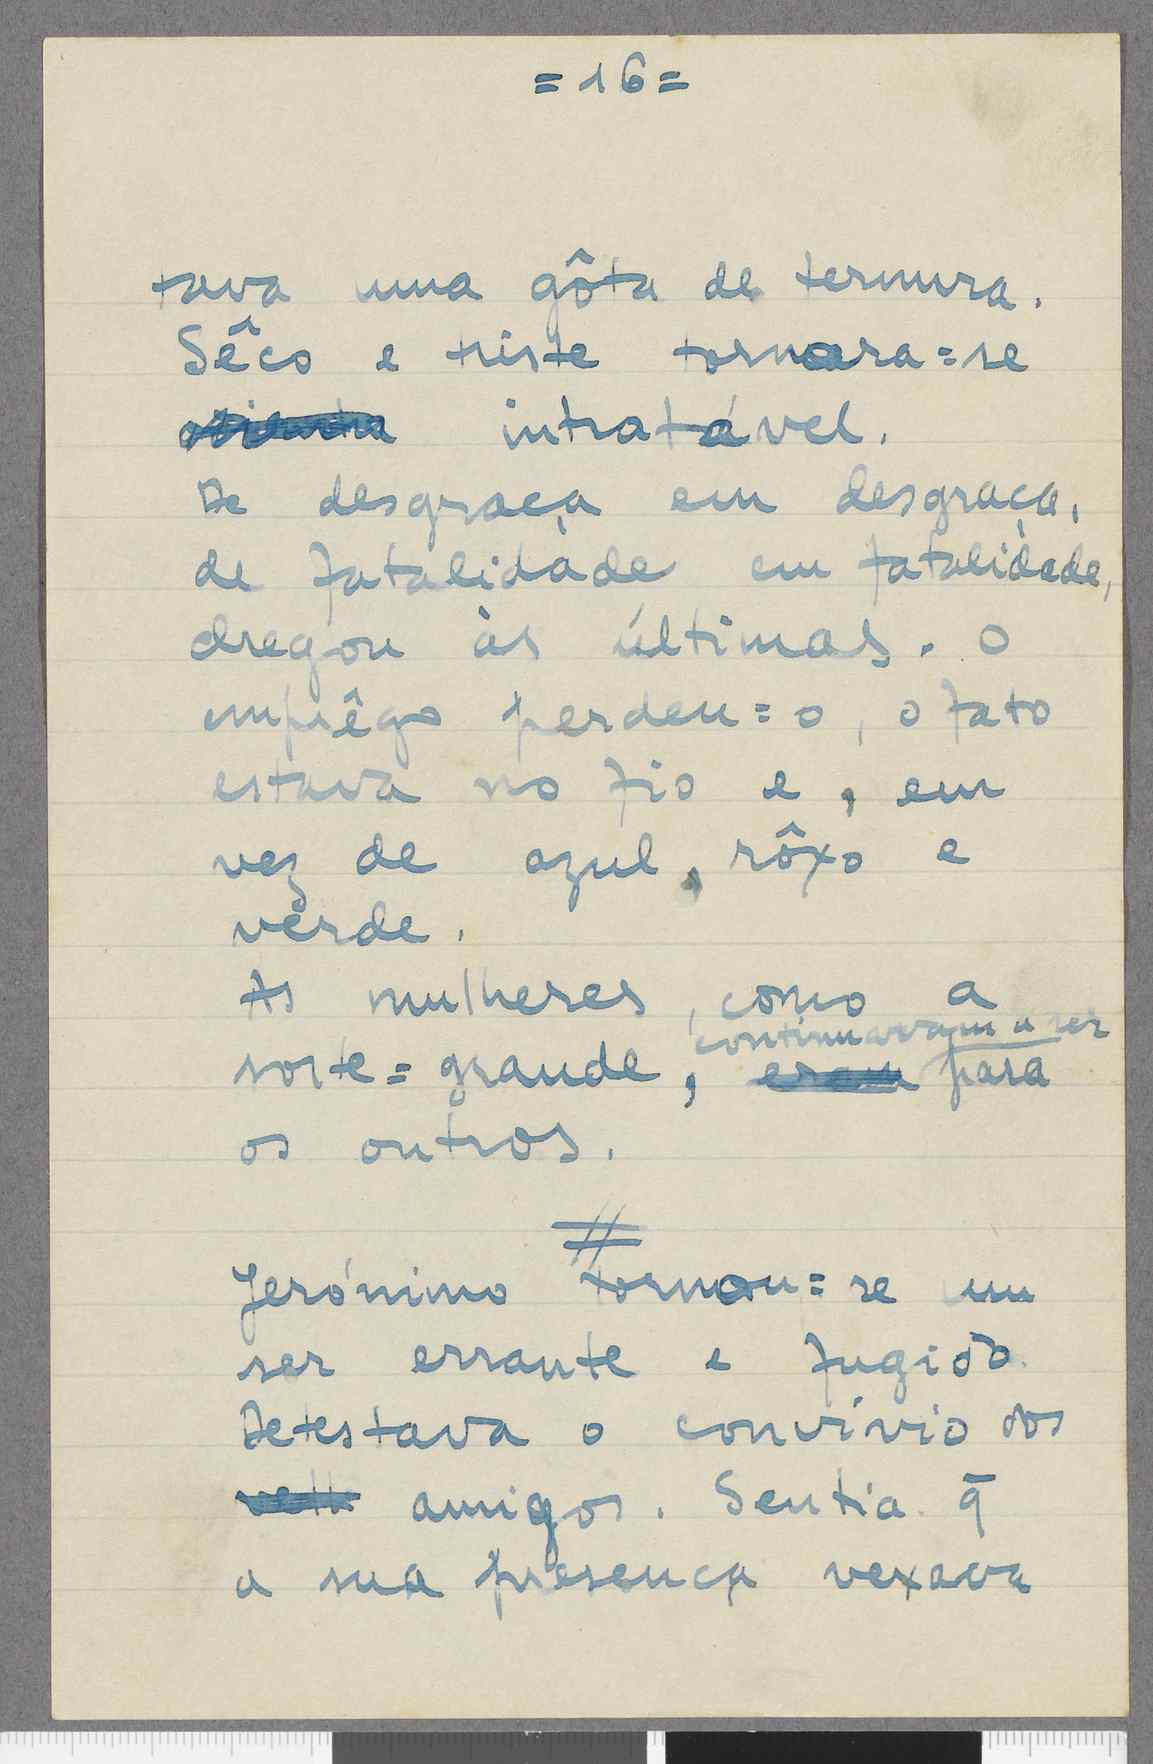 =16=
tava uma gôta de ternura.
Sêco e triste tornara=se
intratável.
De desgraça em desgraça,
de fatalidade em fatalidade,
chegou às últimas. O
emprêgo perdeu=o, o fato
estava no fio e, em
vez de azul, rôxo e
verde.
As mulheres, como a
continuavam a ser
sorte=grande, eram para
os outros.
Jerónimo tornou=se um
ser errante e fugido.
Detestava o convívio dos
amigos. Sentia q̄
a sua presença vexava